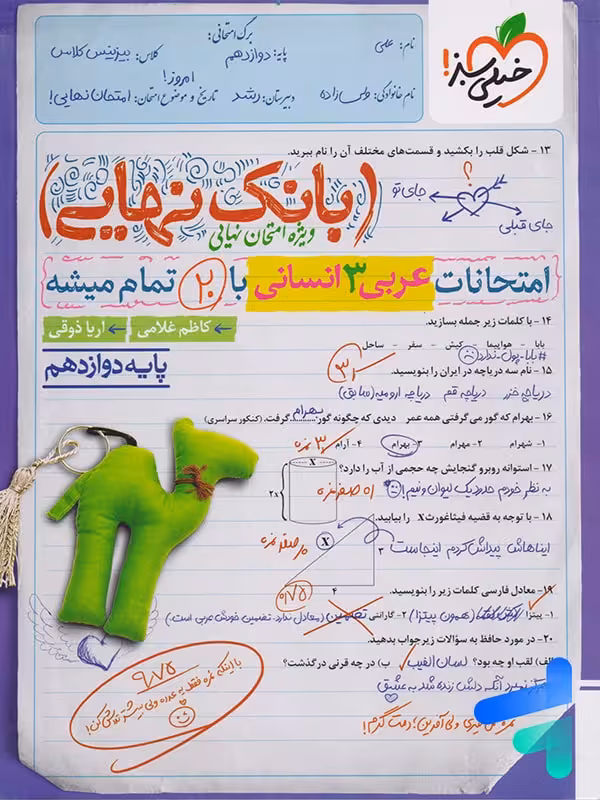 خیلی سبز!
برگ امتحانی:
نام: علی
پایه: دوازدهم
کلاس: بیزینس کلاس
امروز!
نام خانوادگی:
دبیرستان: رشد
تاریخ و موضوع امتحان: امتحان نهایی!
۱۳ - شکل قلب را بکشید و قسمت‌های مختلف آن را نام ببرید.
؟
جای تو
جای قبلی
(بانک نهایی)
ویژه امتحان نهایی
امتحانات عربی ۳ انسانی با ۲۰ تمام میشه
کاظم غلامی
آریا ذوقی
پایه دوازدهم
۱۴ - با کلمات زیر جمله بسازید.
بابا - هواپیما - کیش - سفر - ساحل
#بابا_پول_ندارد
۱۵ - نام سه دریاچه در ایران را بنویسید.
دریاچه خزر دریاچه قم دریاچه ارومیه (سابق)
۱۶ - بهرام که گور می‌گرفتی همه عمر دیدی که چگونه گور بهرام گرفت. (کنکور سراسری)
۱- شهرام ۲- مهرام ۳- بهرام ۴- آرام
۱۷ - استوانه روبرو گنجایش چه حجمی از آب را دارد؟
به نظر خودم حدود یک لیوان و نیم!
X
2X
۱۸ - با توجه به قضیه فیثاغورث X را بیابید.
ایناهاش پیداش کردم اینجاست
X
۳
۴
۰/۷۵
۱۹- معادل فارسی کلمات زیر را بنویسید.
۱- پیتزا (همون پیتزا) ۲- گارانتی تضمین (معادل ندارد. تضمین خودش عربی است.)
۲۰- در مورد حافظ به سؤالات زیر جواب بدهید.
الف) لقب او چه بود؟ لسان الغیب ب) در چه قرنی درگذشت؟
هرگز نمیرد آنکه دلش زنده شد به عشق
ولی آفرین! دمت گرم!
۹/۷۵